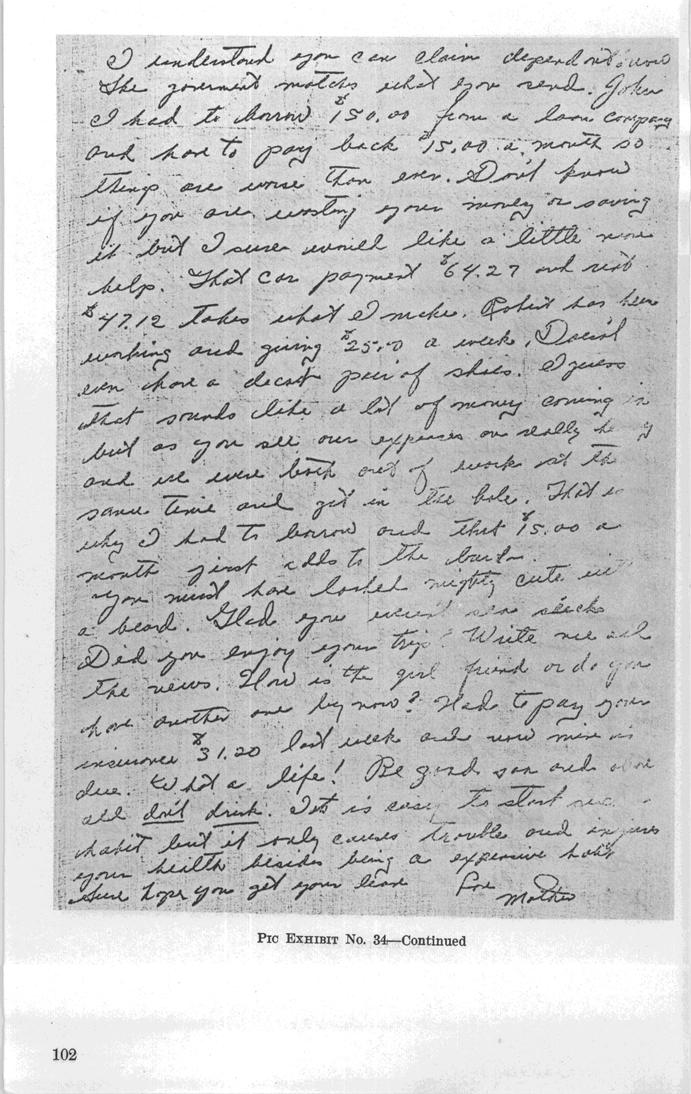 I understand you can claim dependents now
The goverment matches what you send. John
I had to borrow $150.00 from a loan company
and have to pay back $15.00 a month so
things are worse than ever. Don't know
if you are wasting your money or saving
it but I sure would like a little more
help. That car payment $64.27 and rent
$47.12 takes what I make. Robert has been
working and giving $25.00 a week. Doesn't
even have a decent pair of shoes. I guess
that sounds like a lot of money coming in
but as you see our expenses are really
and we were both out of work at the
same time and got in the hole. That is
why I had to borrow and that $15.00 a
month just adds to the
You must have looked mighty cute with
a beard. Glad you weren't sea sick
Did you enjoy your trip? Write me all
the news. How is the girl friend or do you
have another one by now? Had to pay your
insurance $31.20 last week and now mine is
due. What a life! Be good son and above
all don't drink. It is easy to start
habit but it only causes trouble and injures
your health besides being a expensive habit
Sure hope you get your leave Love
Mother
PIC EXHIBIT No. 34—Continued
102